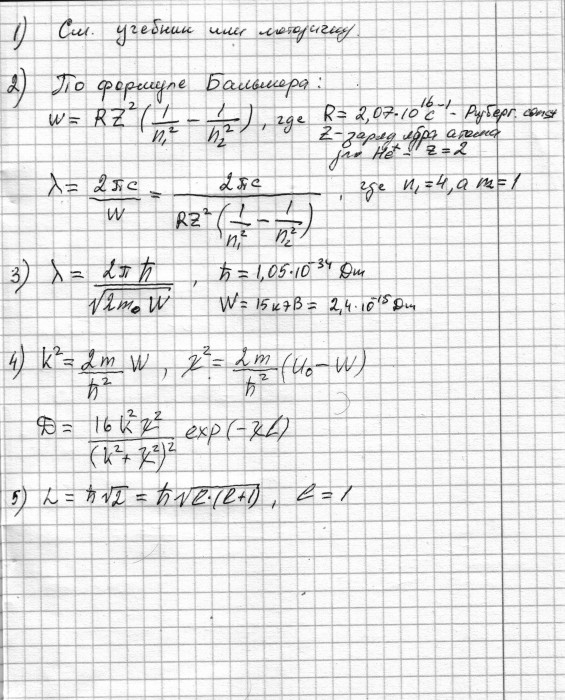 1) См. учебник или методичку.
2) По формуле Бальмера:
W = RZ² (1/n₁² − 1/n₂²), где R = 2,07·10¹⁶ с⁻¹ - Ридберг. const
Z - заряд ядра атома
для He⁺ - Z = 2
λ = 2πc/W = 2πc/(RZ² (1/n₁² − 1/n₂²)), где n₁ = 4, а n₂ = 1
3) λ = 2πħ/√(2m₀W), ħ = 1,05·10⁻³⁴ Дж
W = 15кэВ = 2,4·10⁻¹⁵ Дж
4) k² = 2m/ħ² W, χ² = 2m/ħ² (U₀ − W)
D = 16k²χ²/(k² + χ²)² exp(−χL)
5) L = ħ√2 = ħ√(l·(l+1)), l = 1